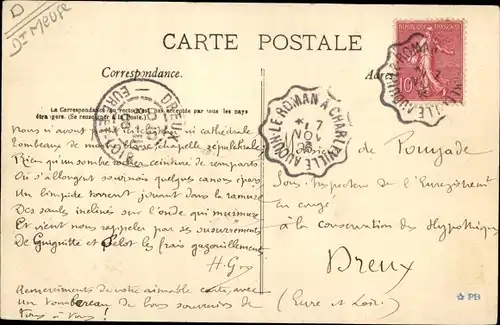 D
Dt Meuse
CARTE POSTALE
Correspondance.
La Correspondance au recto n'est pas acceptée par tous les pays
étrangers. (Se renseigner à la Poste.)
REPUBLIQUE FRANCAISE
10
AUDUN-LE-ROMAN A CHARLEVILLE
7
NOV
DREUX
EURE-ET-LOIR
Nous n'avons point ici ni cathédrale
Tombeaux de marbre chapelle sépulchrale
Rien qu'un sombre rocher ceinturé de remparts
Où s'allongent sournois quelques canons épars
Un limpide torrent jouant dans la ramure
Des saules inclinés sur l'onde qui murmure
Et vient nous rappeler par ses susurrements
De Guignitte et Pélot les frais gazouillements
H. Goy
Remerciements de votre aimable carte avec
un tombereau de bons souvenirs de
nous à vous !
de Pouyade
Sous-Inspecteur de l'Enregistrement
En congé
à la conservation des Hypothèques
Dreux
(Eure et Loir)
PB